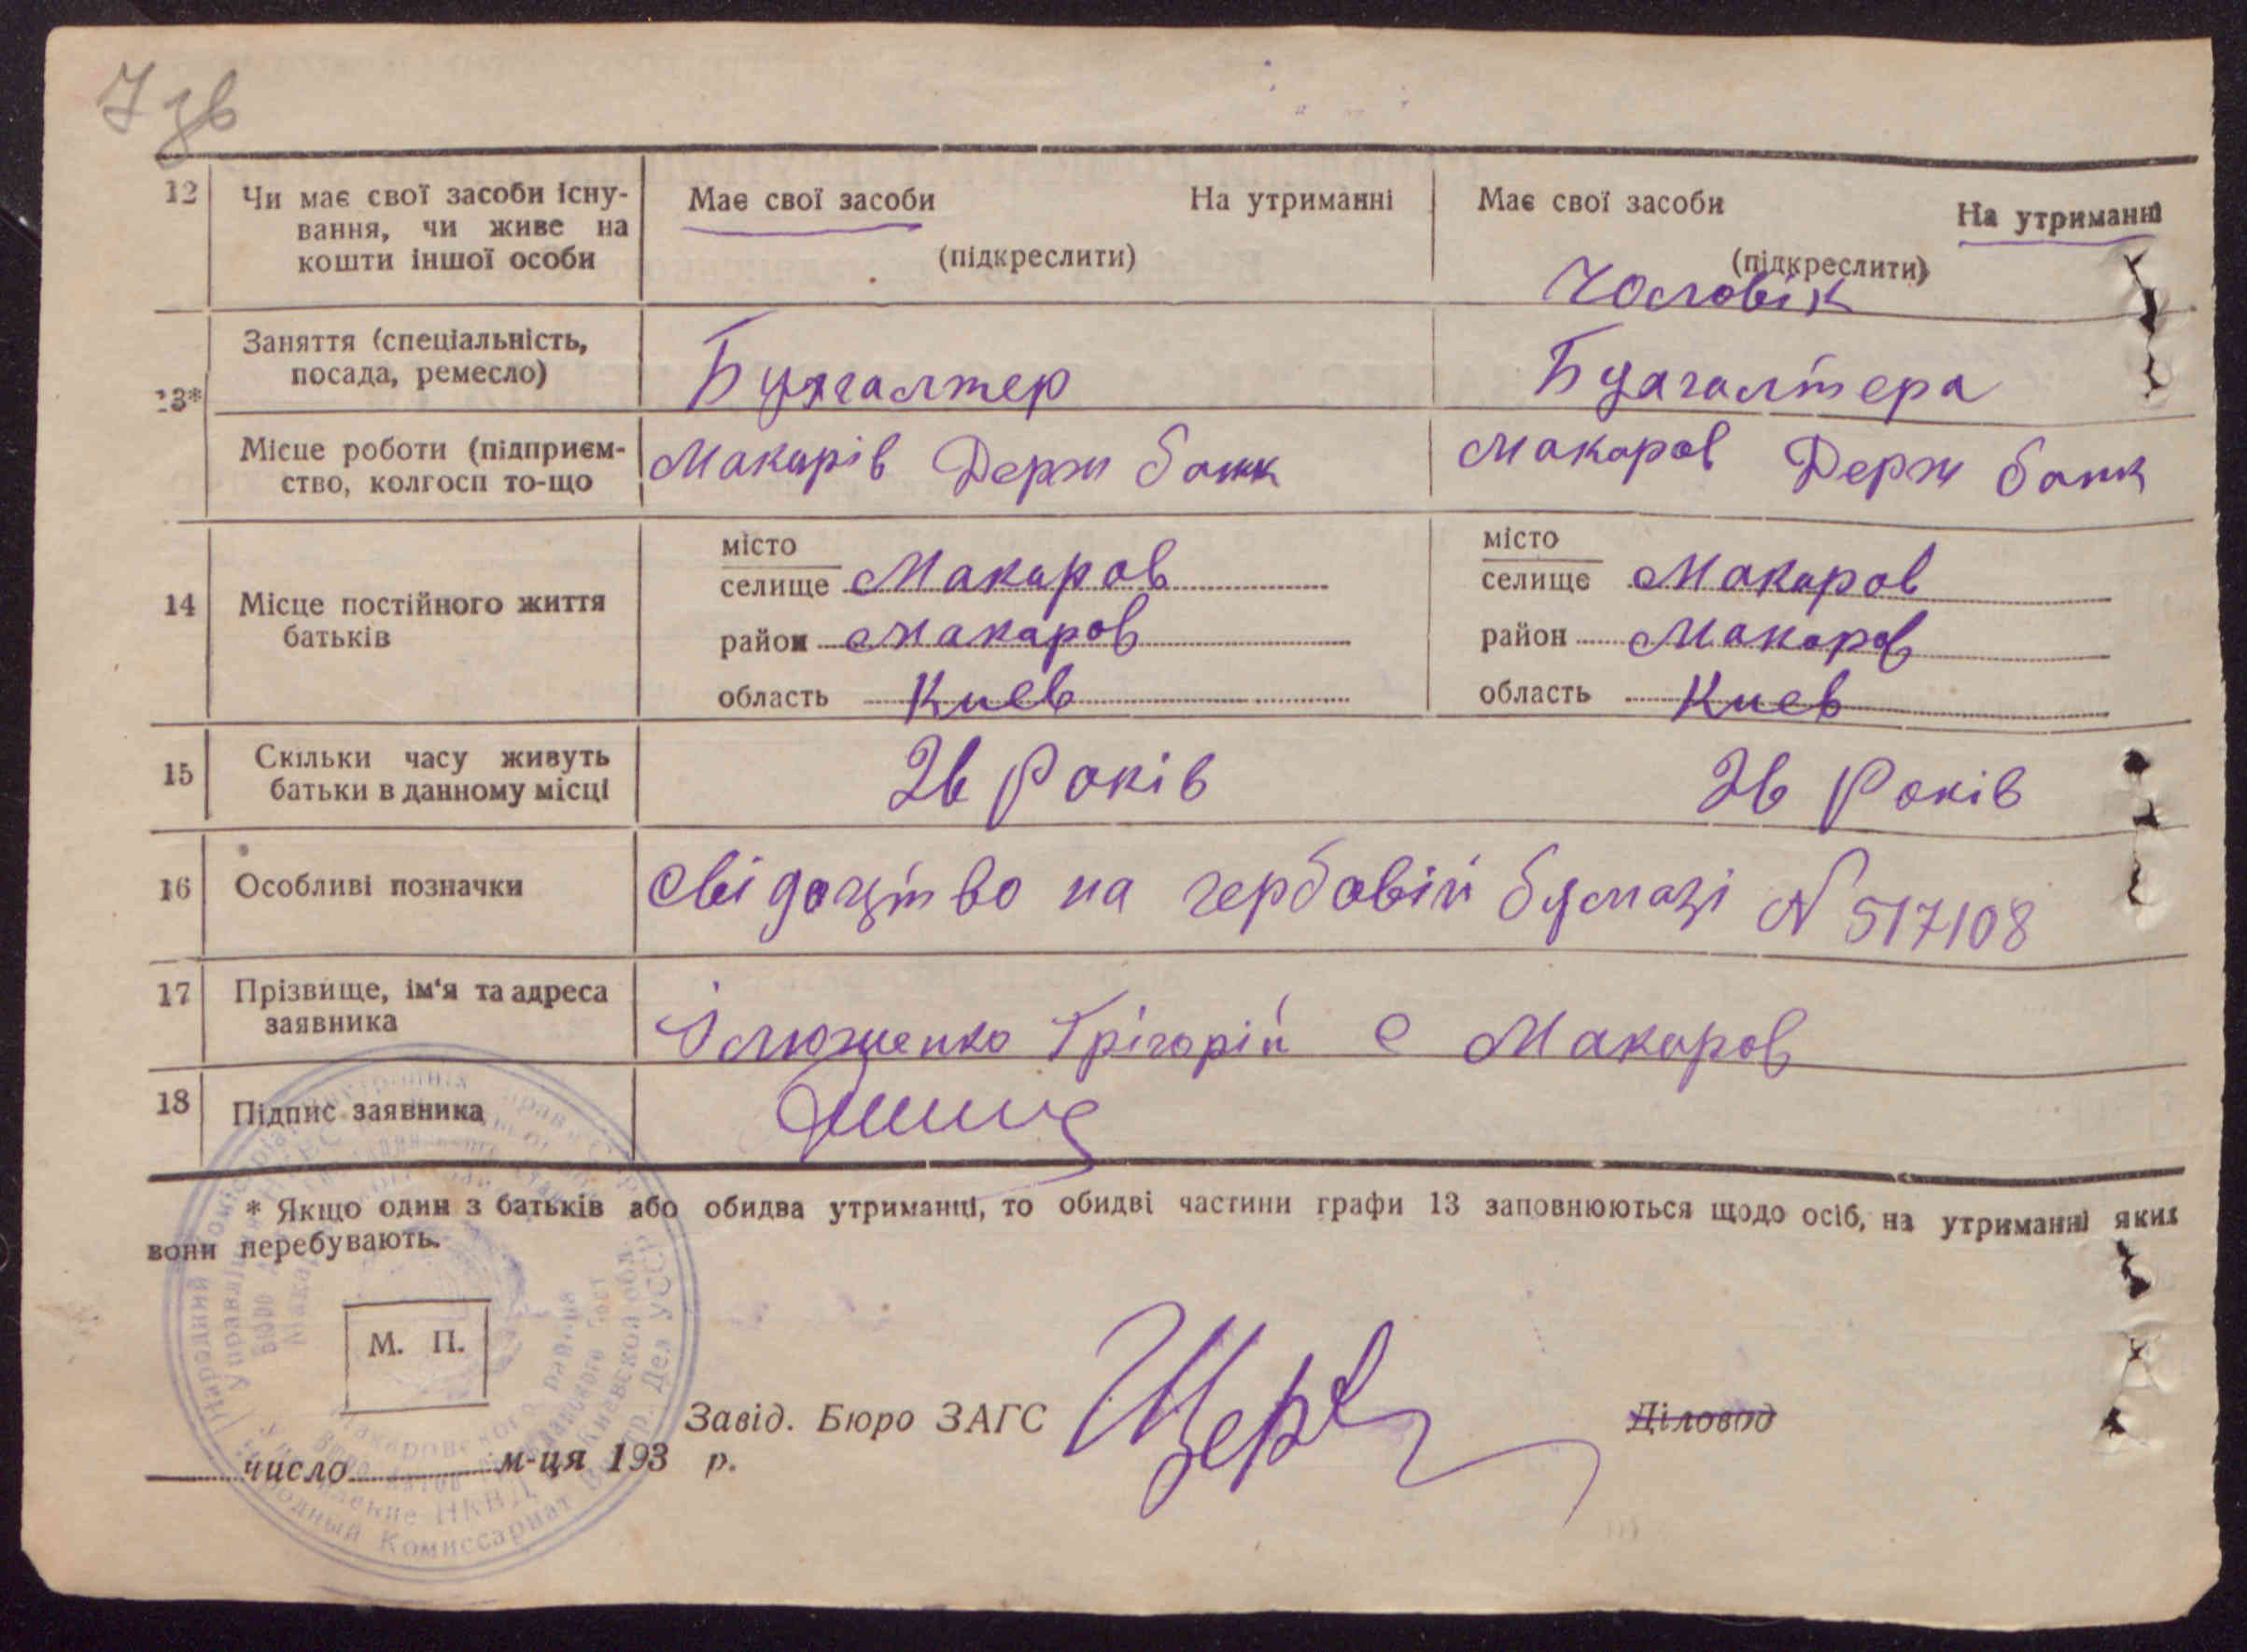 7 зв
12 Чи має свої засоби існу- Має свої засоби На утриманні Має свої засоби На утриманні
вання, чи живе на
кошти іншої особи (підкреслити) (підкреслити)
Чоловік
Заняття (спеціальність,
посада, ремесло) Бухгалтер Бухгалтера
13*
Місце роботи (підприєм- Макарів Держ банк Макаров Держ банк
ство, колгосп то-що
місто місто
селище Макаров селище Макаров
14 Місце постійного життя
батьків район Макаров район Макаров
область Киев область Киев
15 Скільки часу живуть 26 Років 26 Років
батьки в данному місці
16 Особливі позначки Свідоцтво на гербовій бумазі N 517108
17 Прізвище, ім'я та адреса
заявника Ілюшенко Грігорій с Макаров
18 Підпис заявника
* Якщо один з батьків або обидва утриманці, то обидві частини графи 13 заповнюються щодо осіб, на утриманні яких
вони перебувають.
М. П.
Завід. Бюро ЗАГС Діловод
число м-ця 193 р.
Народный Комиссариат Внутр. Дел УССР
Управление НКВД Киевской обл.
Макаровского района